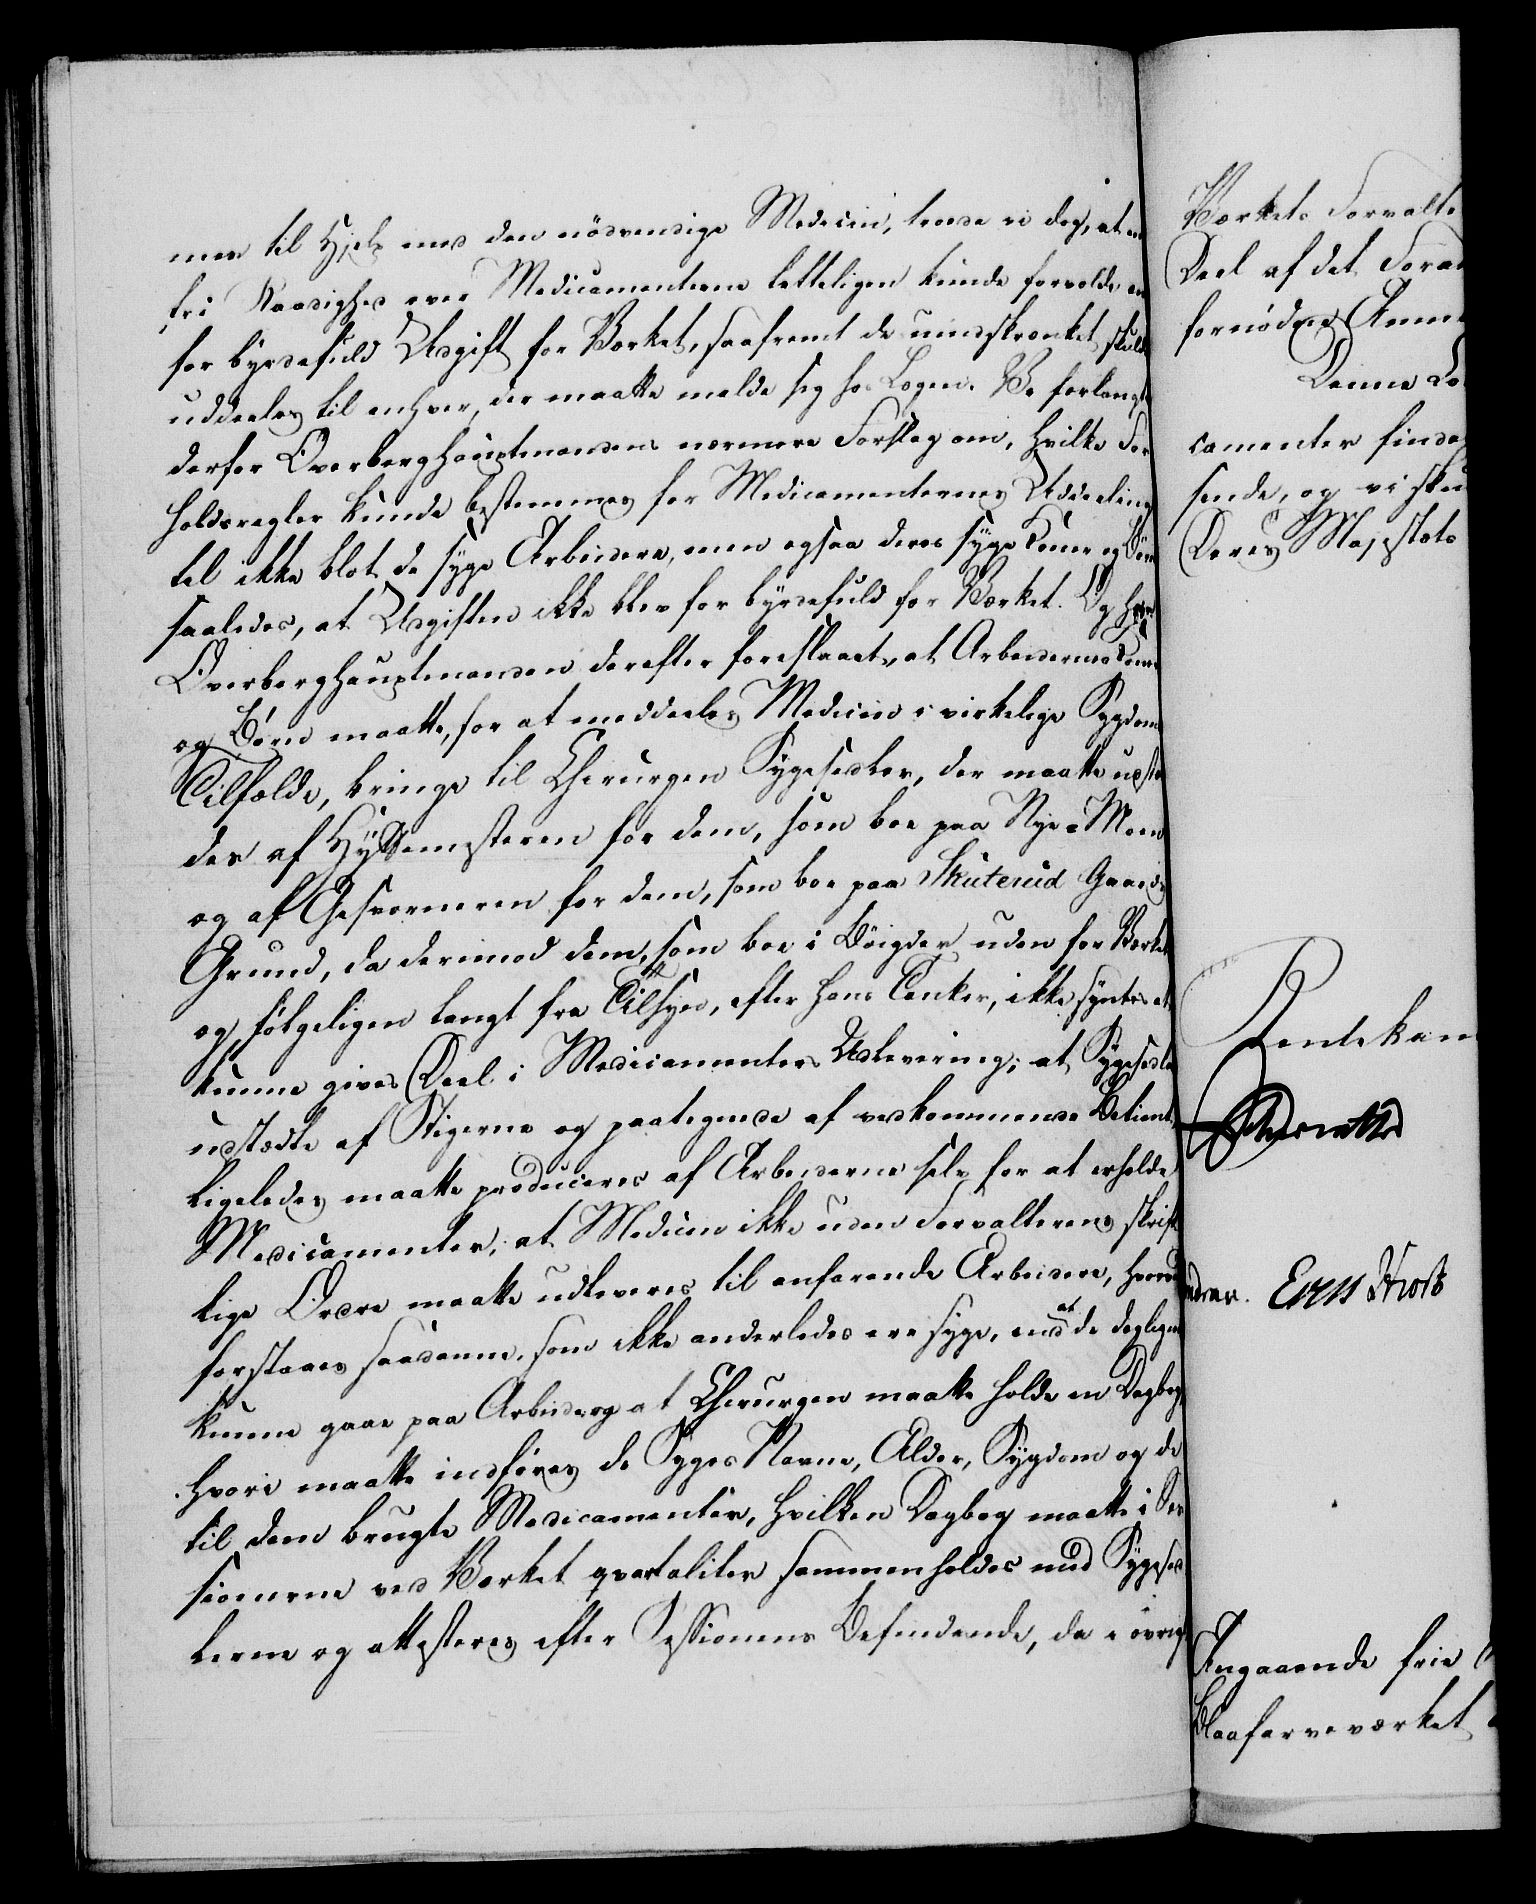 men til Hjelp med den nödvendige Medicin, troede vi dog, at en
fri Raadighed over Medicamenterne letteligen kunde forvolde en
for byrdefuld Udgift for Værket, saafremt de uindskrænket skulde
uddeeles til enhver, der maatte melde sig hos Lægen. Vi forlangte
derfor Overberghauptmandens nærmere Forslag om, hvilke For
holdsregler kunde bestemmes for Medicamenternes Uddeeling
til ikke blot de syge Arbeidere, men ogsaa deres syge Koner og Börn
saaledes, at Udgiften ikke blev for byrdefuld for Værket. Og har
Overberghauptmanden derefter foreslaaet, at Arbeidernes Koner
og Börn maatte, for at meddeeles Medicin i virkelige Sygdoms
Tilfælde, bringe til Chirurgen Sygesedler, der maatte udste
des af Hyttemesteren for dem, som boe paa Nye-Moen
og af Geschwornern for dem, som boe paa Skuterud Gaards
Grund, da derimod dem, som boe i Böigder uden for Værket
og fölgeligen langt fra Tilsyn, efter hans Tanker, ikke syntes at
kunne gives Deel i Medicamenters Udlevering; at Sygesedler
udstædte af Stigerne og paategnede af vedkommende Betient
ligeledes maatte produceres af Arbeiderne selv for at erholde
Medicamenter; at Medicin ikke uden Forvalterens skrift
lige Ordre maatte udleveres til anfarende Arbeidere, hvorved
forstaaes saadanne, som ikke anderledes ere syge, end at de dagligen
kunne gaae paa Arbeide, og at Chirurgen maatte holde en Dagbog,
hvori maatte indföres de Syges Navne, Alder, Sygdom og de
til dem brugte Medicamenter, hvilken Dagbog maatte i Ses
sionerne ved Værket qvartaliter sammenholdes med Sygesed
lerne og attesteres efter Sessionens Befindende, da i övrigt
Værkets Forvalte
Deel af det Foran
fornödne Anme
Denne
camenter finde
sende, og vi sku
Deres Majestæts
Rentekam
Angaaende frie
Blaafarveværket